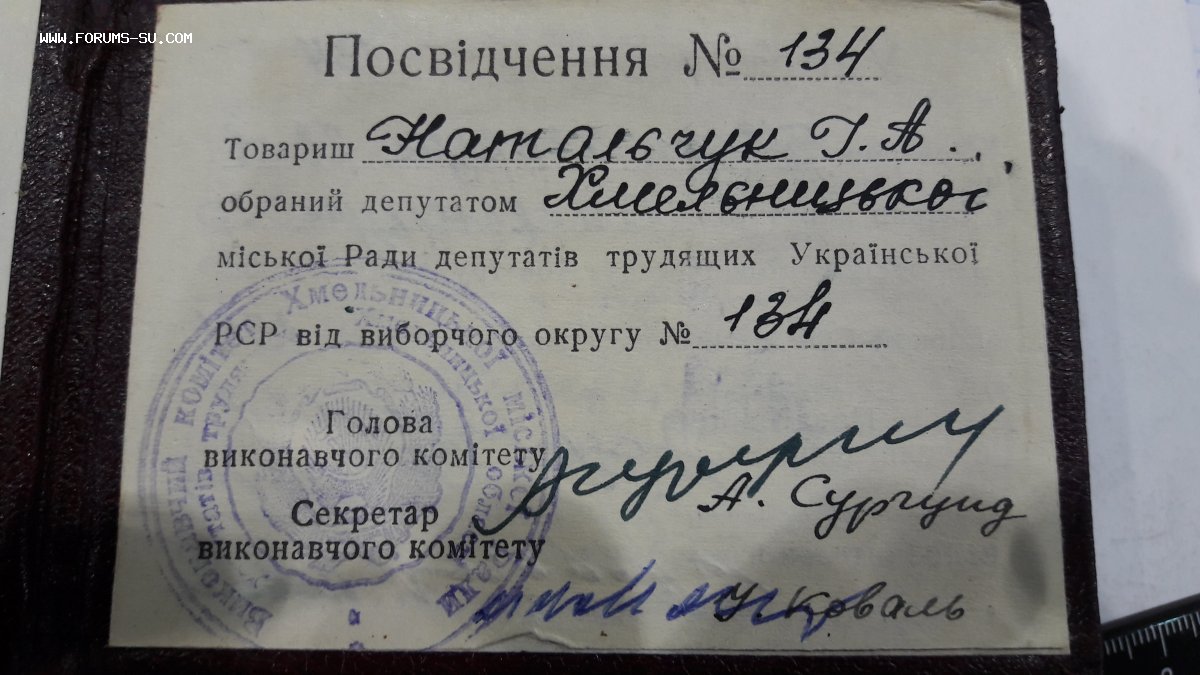 www.forums-su.com
Посвідчення № 134
Товариш Натальчук Г. А.
обраний депутатом Хмельницької
міської Ради депутатів трудящих Української
РСР від виборчого округу № 134
Голова
виконавчого комітету
А. Сургунд
Секретар
виконавчого комітету
У. Коваль
Виконавчий комітет Хмельницької міської Ради